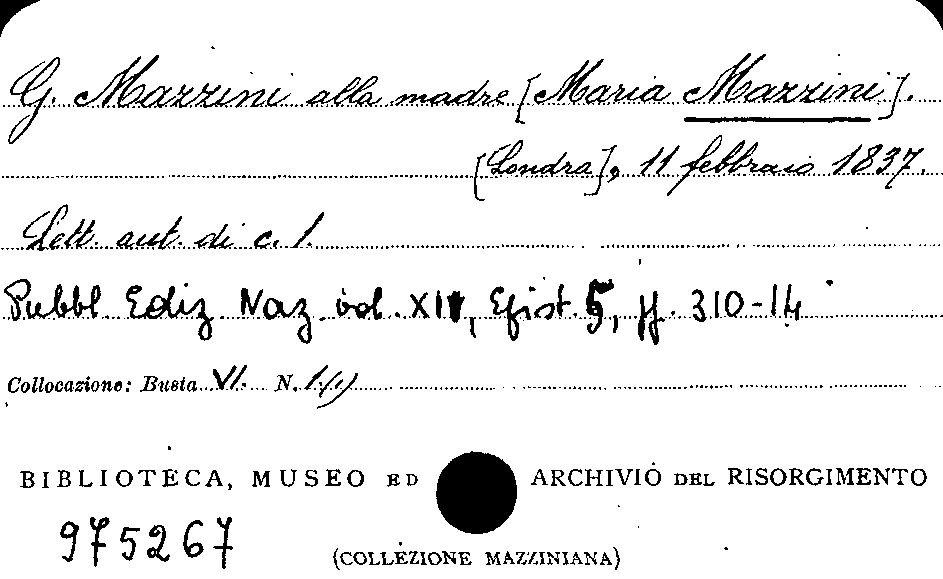 G. Mazzini alla madre [Maria Mazzini].
[Londra], 11 febbraio 1837.
Lett. aut. di c. 1.
Pubbl. Ediz. Naz. vol. XII, Epist. 5, pp. 310-14
Collocazione: Busta VI. N. 1.(1)
BIBLIOTECA, MUSEO ED ARCHIVIO DEL RISORGIMENTO
975267
(COLLEZIONE MAZZINIANA)